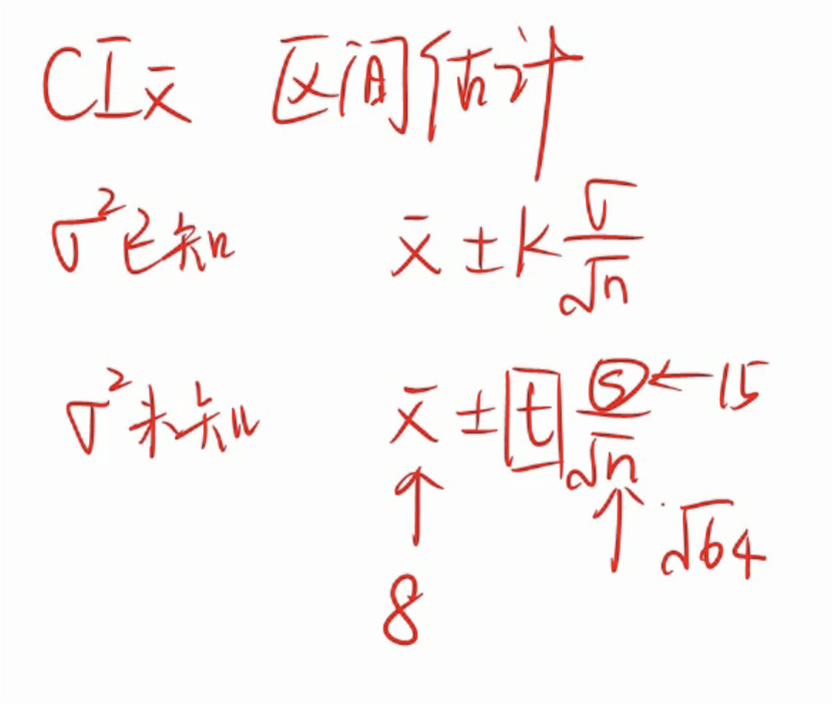 CI x̄ 区间估计
σ²已知 x̄ ± k σ/√n
σ²未知 x̄ ± t s/√n ← 15
↑ ↑ √64
8